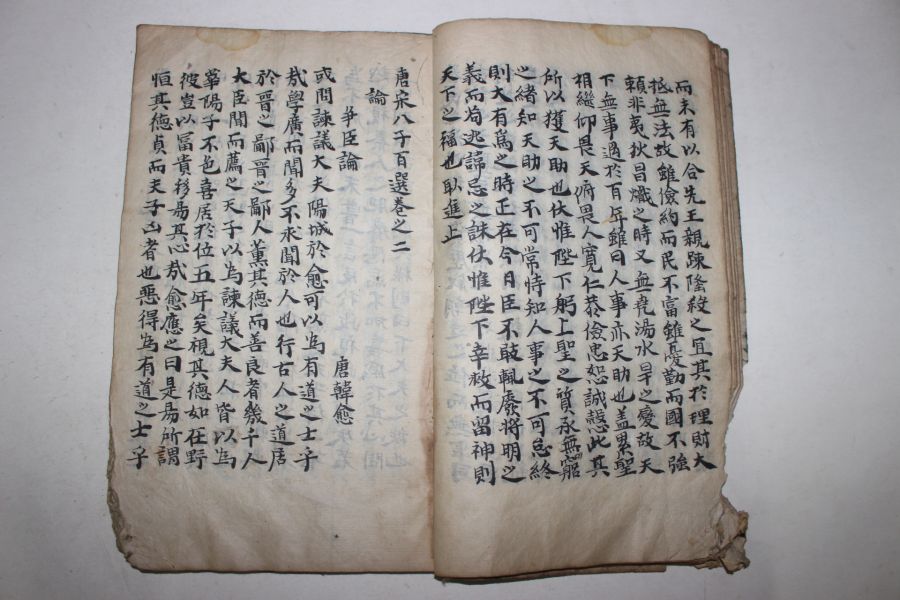 而未有以合先王親踈隆殺之宜其於理財大
抵無法故雖儉約而民不富雖憂勤而國不強
賴非夷狄昌熾之時又無堯湯水旱之變故天
下無事過於百年雖曰人事亦天助也盖累聖
相繼仰畏天俯畏人寬仁恭儉忠恕誠慤此其
所以獲天助也伏惟陛下躬上聖之質承無窮
之緒知天助之不可常恃知人事之不可怠終
則大有爲之時正在今日臣不敢輒廢將明之
義而苟逃諱忌之誅伏惟陛下幸赦而留神則
天下之福也取進止
唐宋八子百選卷之二
論
爭臣論 唐韓愈
或問諫議大夫陽城於愈可以爲有道之士乎
哉學廣而聞多不求聞於人也行古人之道居
於晋之鄙晋之鄙人薰其德而善良者幾千人
大臣聞而薦之天子以爲諫議大夫人皆以爲
華陽子不色喜居於位五年矣視其德如在野
彼豈以富貴移易其心哉愈應之曰是易所謂
恒其德貞而夫子凶者也惡得爲有道之士乎